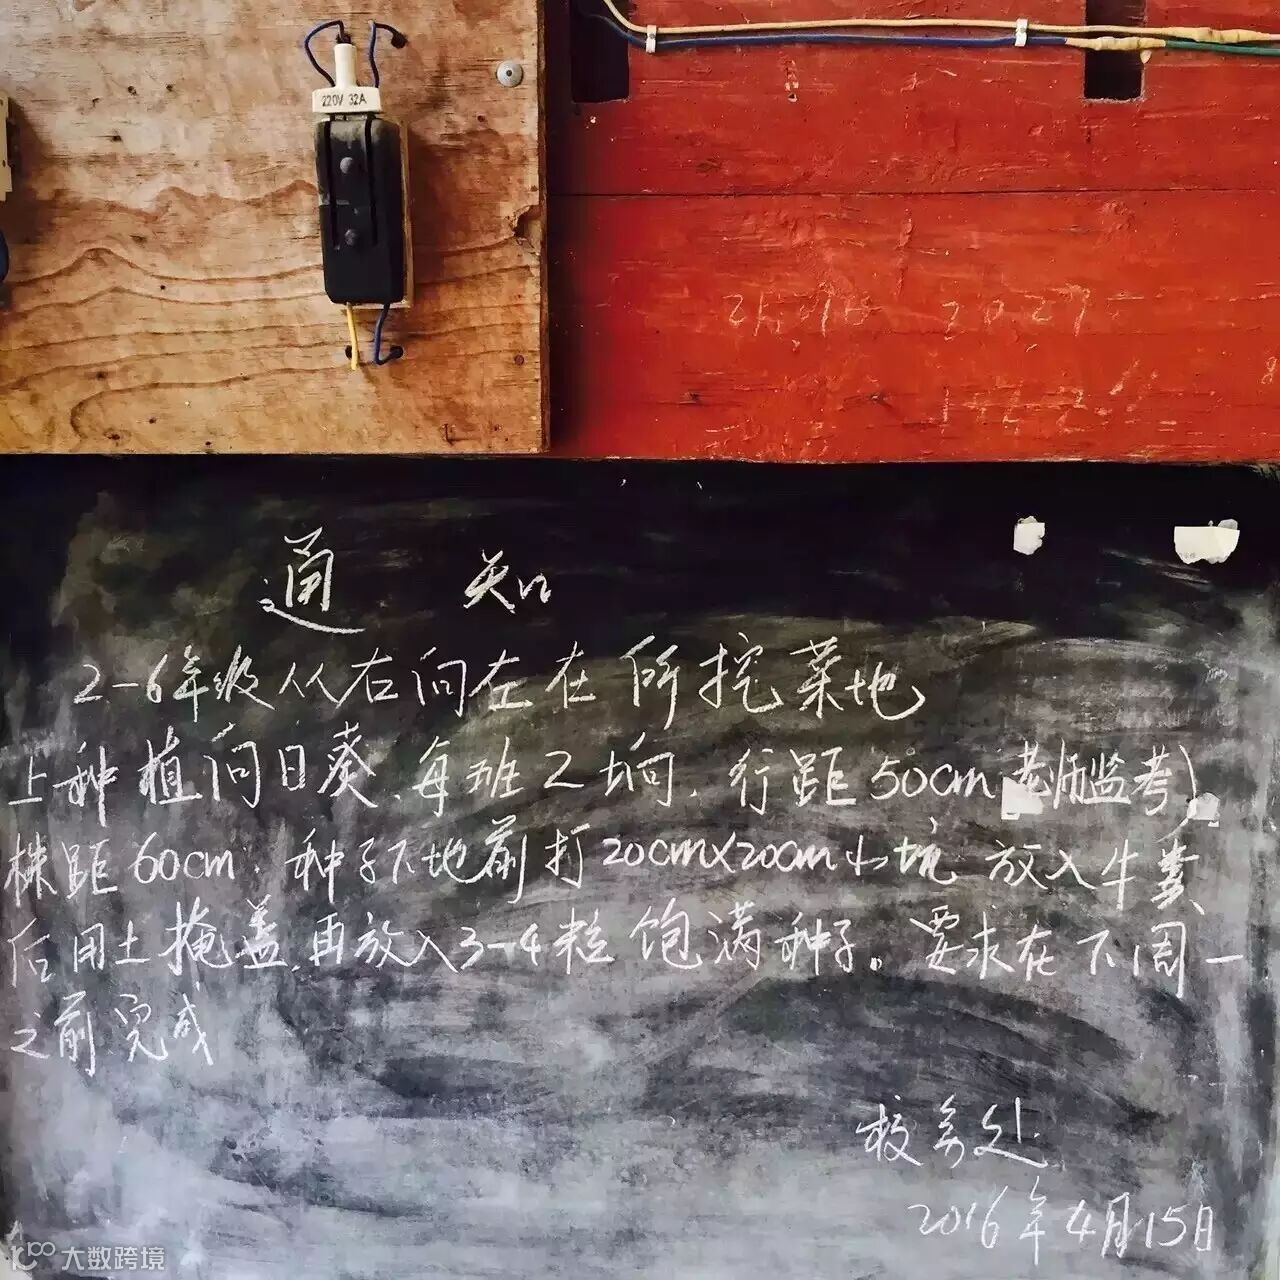 220V 32A
通 知
2-6年级从右向左在所挖菜地
上种植向日葵、每班2垧、行距50cm(老师监考)
株距60cm、种子下地前打20cm×20cm小坑 放入牛粪
后用土掩盖,再放入3-4粒饱满种子。要求在下周一
之前完成
校务处
2016年4月15日
大数跨境